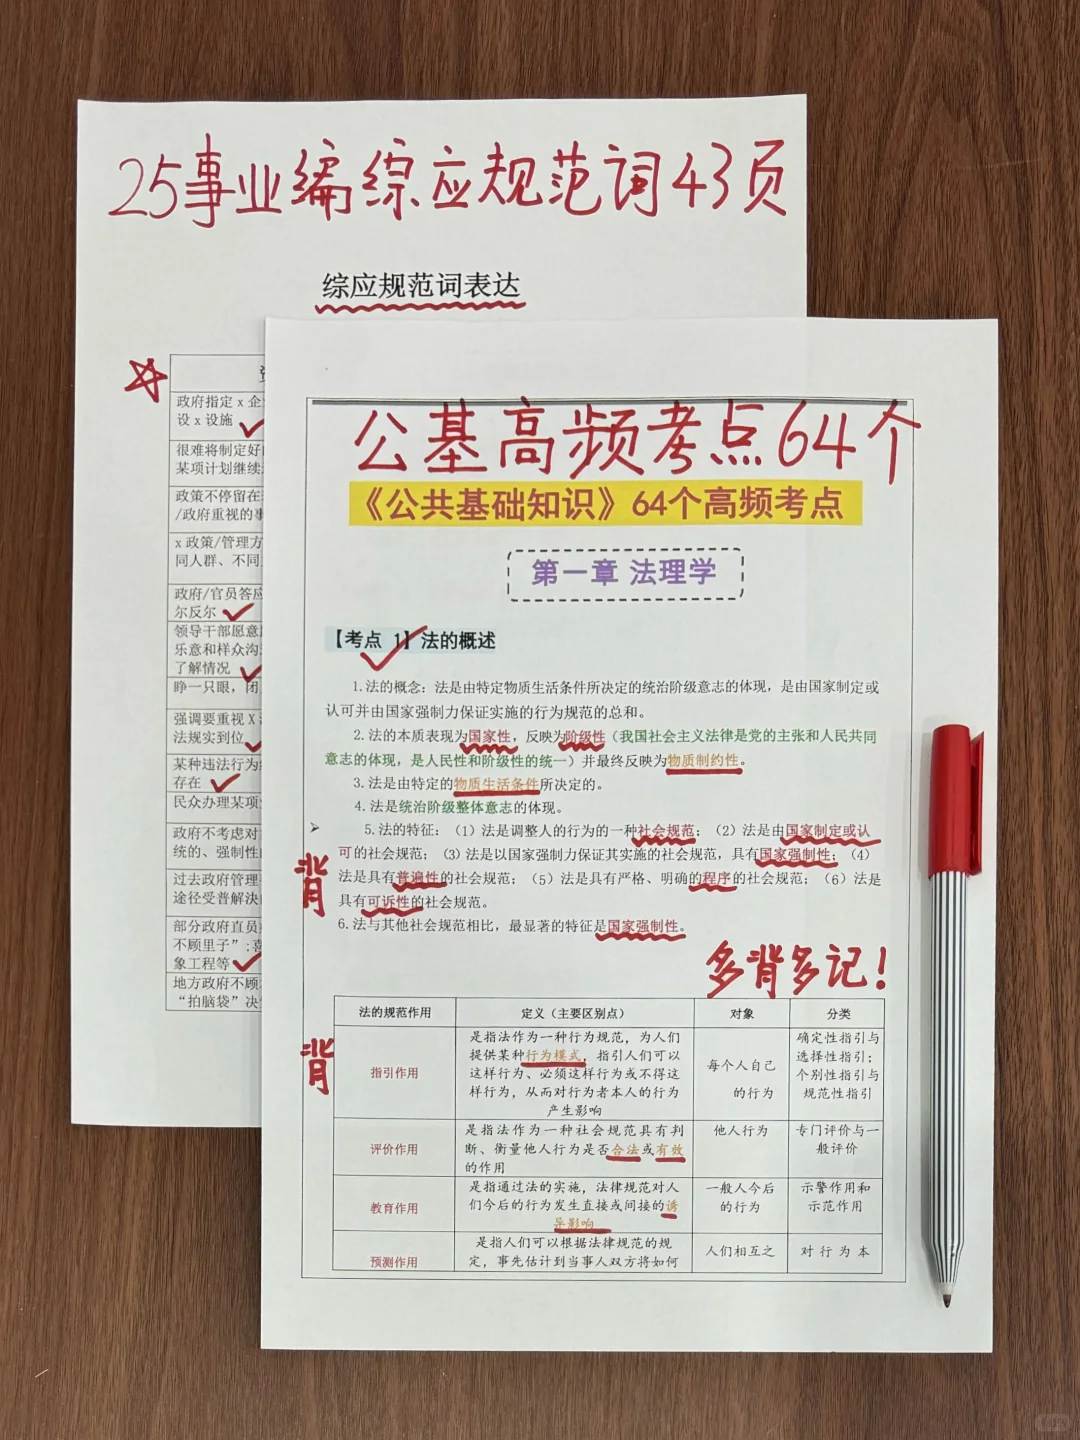 25事业编综应规范词43页
综应规范词表达
政府指定 x 企
设 x 设施
很难将制定好
某项计划继续
政策不停留在
/政府重视的事
x 政策/管理方
同人群、不同
政府/官员答应
尔反尔
领导干部愿意
乐意和样众沟
了解情况
睁一只眼，闭
强调要重视 X
法规实到位
某种违法行为
存在
民众办理某项
政府不考虑对
统的、强制性
过去政府管理
途径受普解决
部分政府直员
不顾里子”;喜
象工程等
地方政府不顾
“拍脑袋”决
公基高频考点64个
《公共基础知识》64个高频考点
第一章 法理学
【考点 1】法的概述
1.法的概念：法是由特定物质生活条件所决定的统治阶级意志的体现，是由国家制定或
认可并由国家强制力保证实施的行为规范的总和。
2.法的本质表现为国家性，反映为阶级性（我国社会主义法律是党的主张和人民共同
意志的体现，是人民性和阶级性的统一）并最终反映为物质制约性。
3.法是由特定的物质生活条件所决定的。
4.法是统治阶级整体意志的体现。
5.法的特征：（1）法是调整人的行为的一种社会规范；（2）法是由国家制定或认
可的社会规范；（3）法是以国家强制力保证其实施的社会规范，具有国家强制性；（4）
背
法是具有普遍性的社会规范；（5）法是具有严格、明确的程序的社会规范；（6）法是
具有可诉性的社会规范。
6.法与其他社会规范相比，最显著的特征是国家强制性。
多背多记！
法的规范作用 定义（主要区别点） 对象 分类
背
指引作用
是指法作为一种行为规范，为人们
提供某种行为模式，指引人们可以
这样行为、必须这样行为或不得这
样行为，从而对行为者本人的行为
产生影响
每个人自己
的行为
确定性指引与
选择性指引；
个别性指引与
规范性指引
评价作用
是指法作为一种社会规范具有判
断、衡量他人行为是否合法或有效
的作用
他人行为
专门评价与一
般评价
教育作用
是指通过法的实施，法律规范对人
们今后的行为发生直接或间接的诱
导影响
一般人今后
的行为
示警作用和
示范作用
预测作用
是指人们可以根据法律规范的规
定，事先估计到当事人双方将如何
人们相互之
对行为本